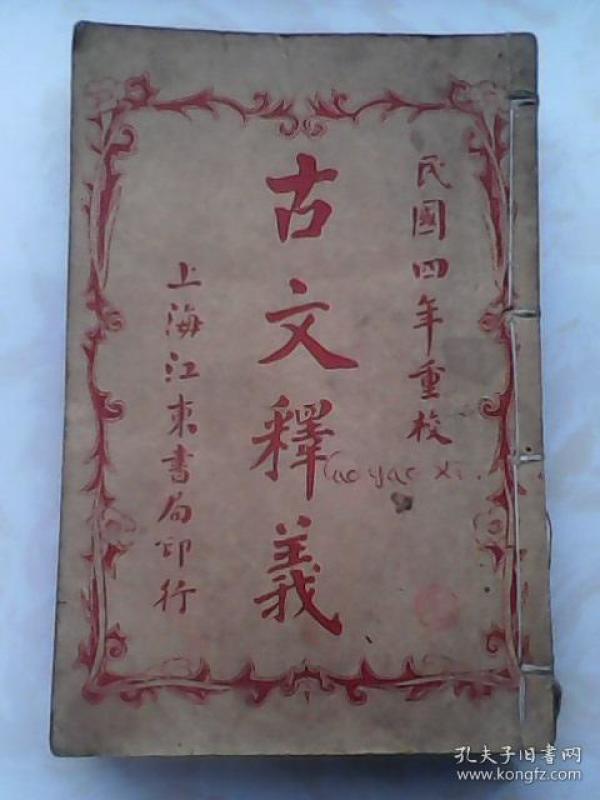 民國四年重校
古文釋義
上海江東書局印行
Cao yao xi.
孔夫子旧书网
www.kongfz.com